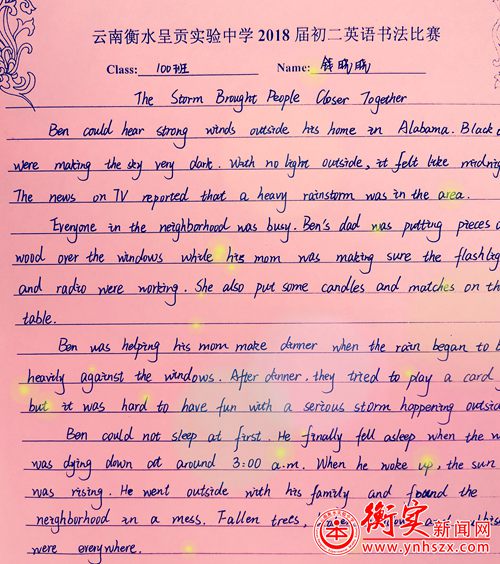 云南衡水呈贡实验中学 2018 届初二英语书法比赛
Class: 100班 Name: 钱晓晓
The Storm Brought People Closer Together
Ben could hear strong winds outside his home in Alabama. Black
were making the sky very dark. With no light outside, it felt like midnig
The news on TV reported that a heavy rainstorm was in the area.
Everyone in the neighborhood was busy. Ben's dad was putting pieces o
wood over the windows while his mom was making sure the flashlig
and radio were working. She also put some candles and matches on th
table.
Ben was helping his mom make dinner when the rain began to b
heavily against the windows. After dinner, they tried to play a card
but it was hard to have fun with a serious storm happening outsid
Ben could not sleep at first. He finally fell asleep when the w
was dying down at around 3:00 a.m. When he woke up, the sun
was rising. He went outside with his family and found the
neighborhood in a mess. Fallen trees,
were everywhere.
衡实新闻网
www.ynhszx.com